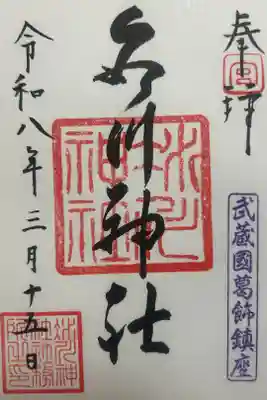 奉拝
武蔵國葛飾鎮座
氷川神社
氷川
神社
令和八年三月十五日
氷川神
社社務
所之印